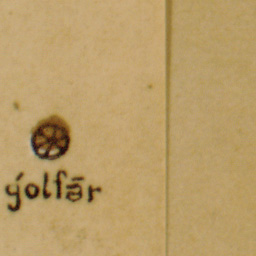 ýolfār